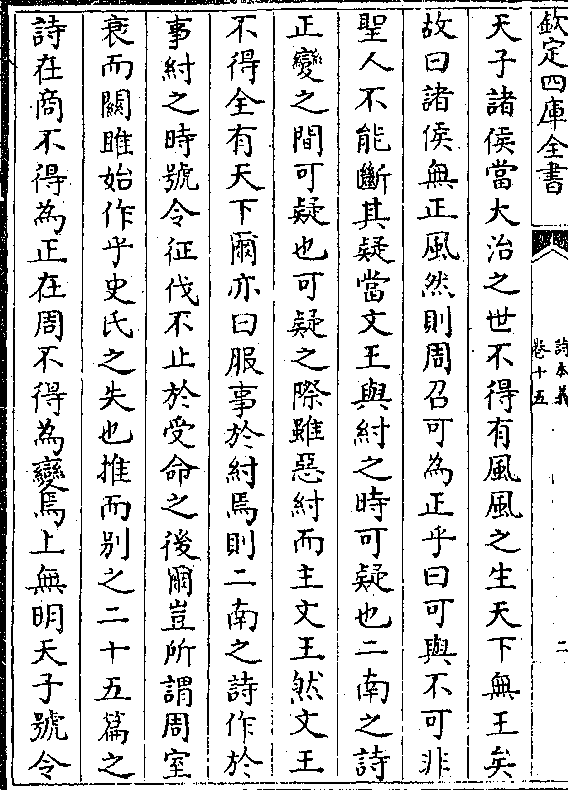 欽定四庫全書
詩本義
卷十五
二
天子諸侯當大治之世不得有風風之生天下無王矣
故曰諸侯無正風然則周召可為正乎曰可與不可非
聖人不能斷其疑當文王與紂之時可疑也二南之詩
正變之間可疑也可疑之際雖惡紂而主文王然文王
不得全有天下爾亦曰服事於紂焉則二南之詩作於
事紂之時號令征伐不止於受命之後爾豈所謂周室
衰而關雎始作乎史氏之失也推而别之二十五篇之
詩在商不得為正在周不得為變焉上無明天子號令